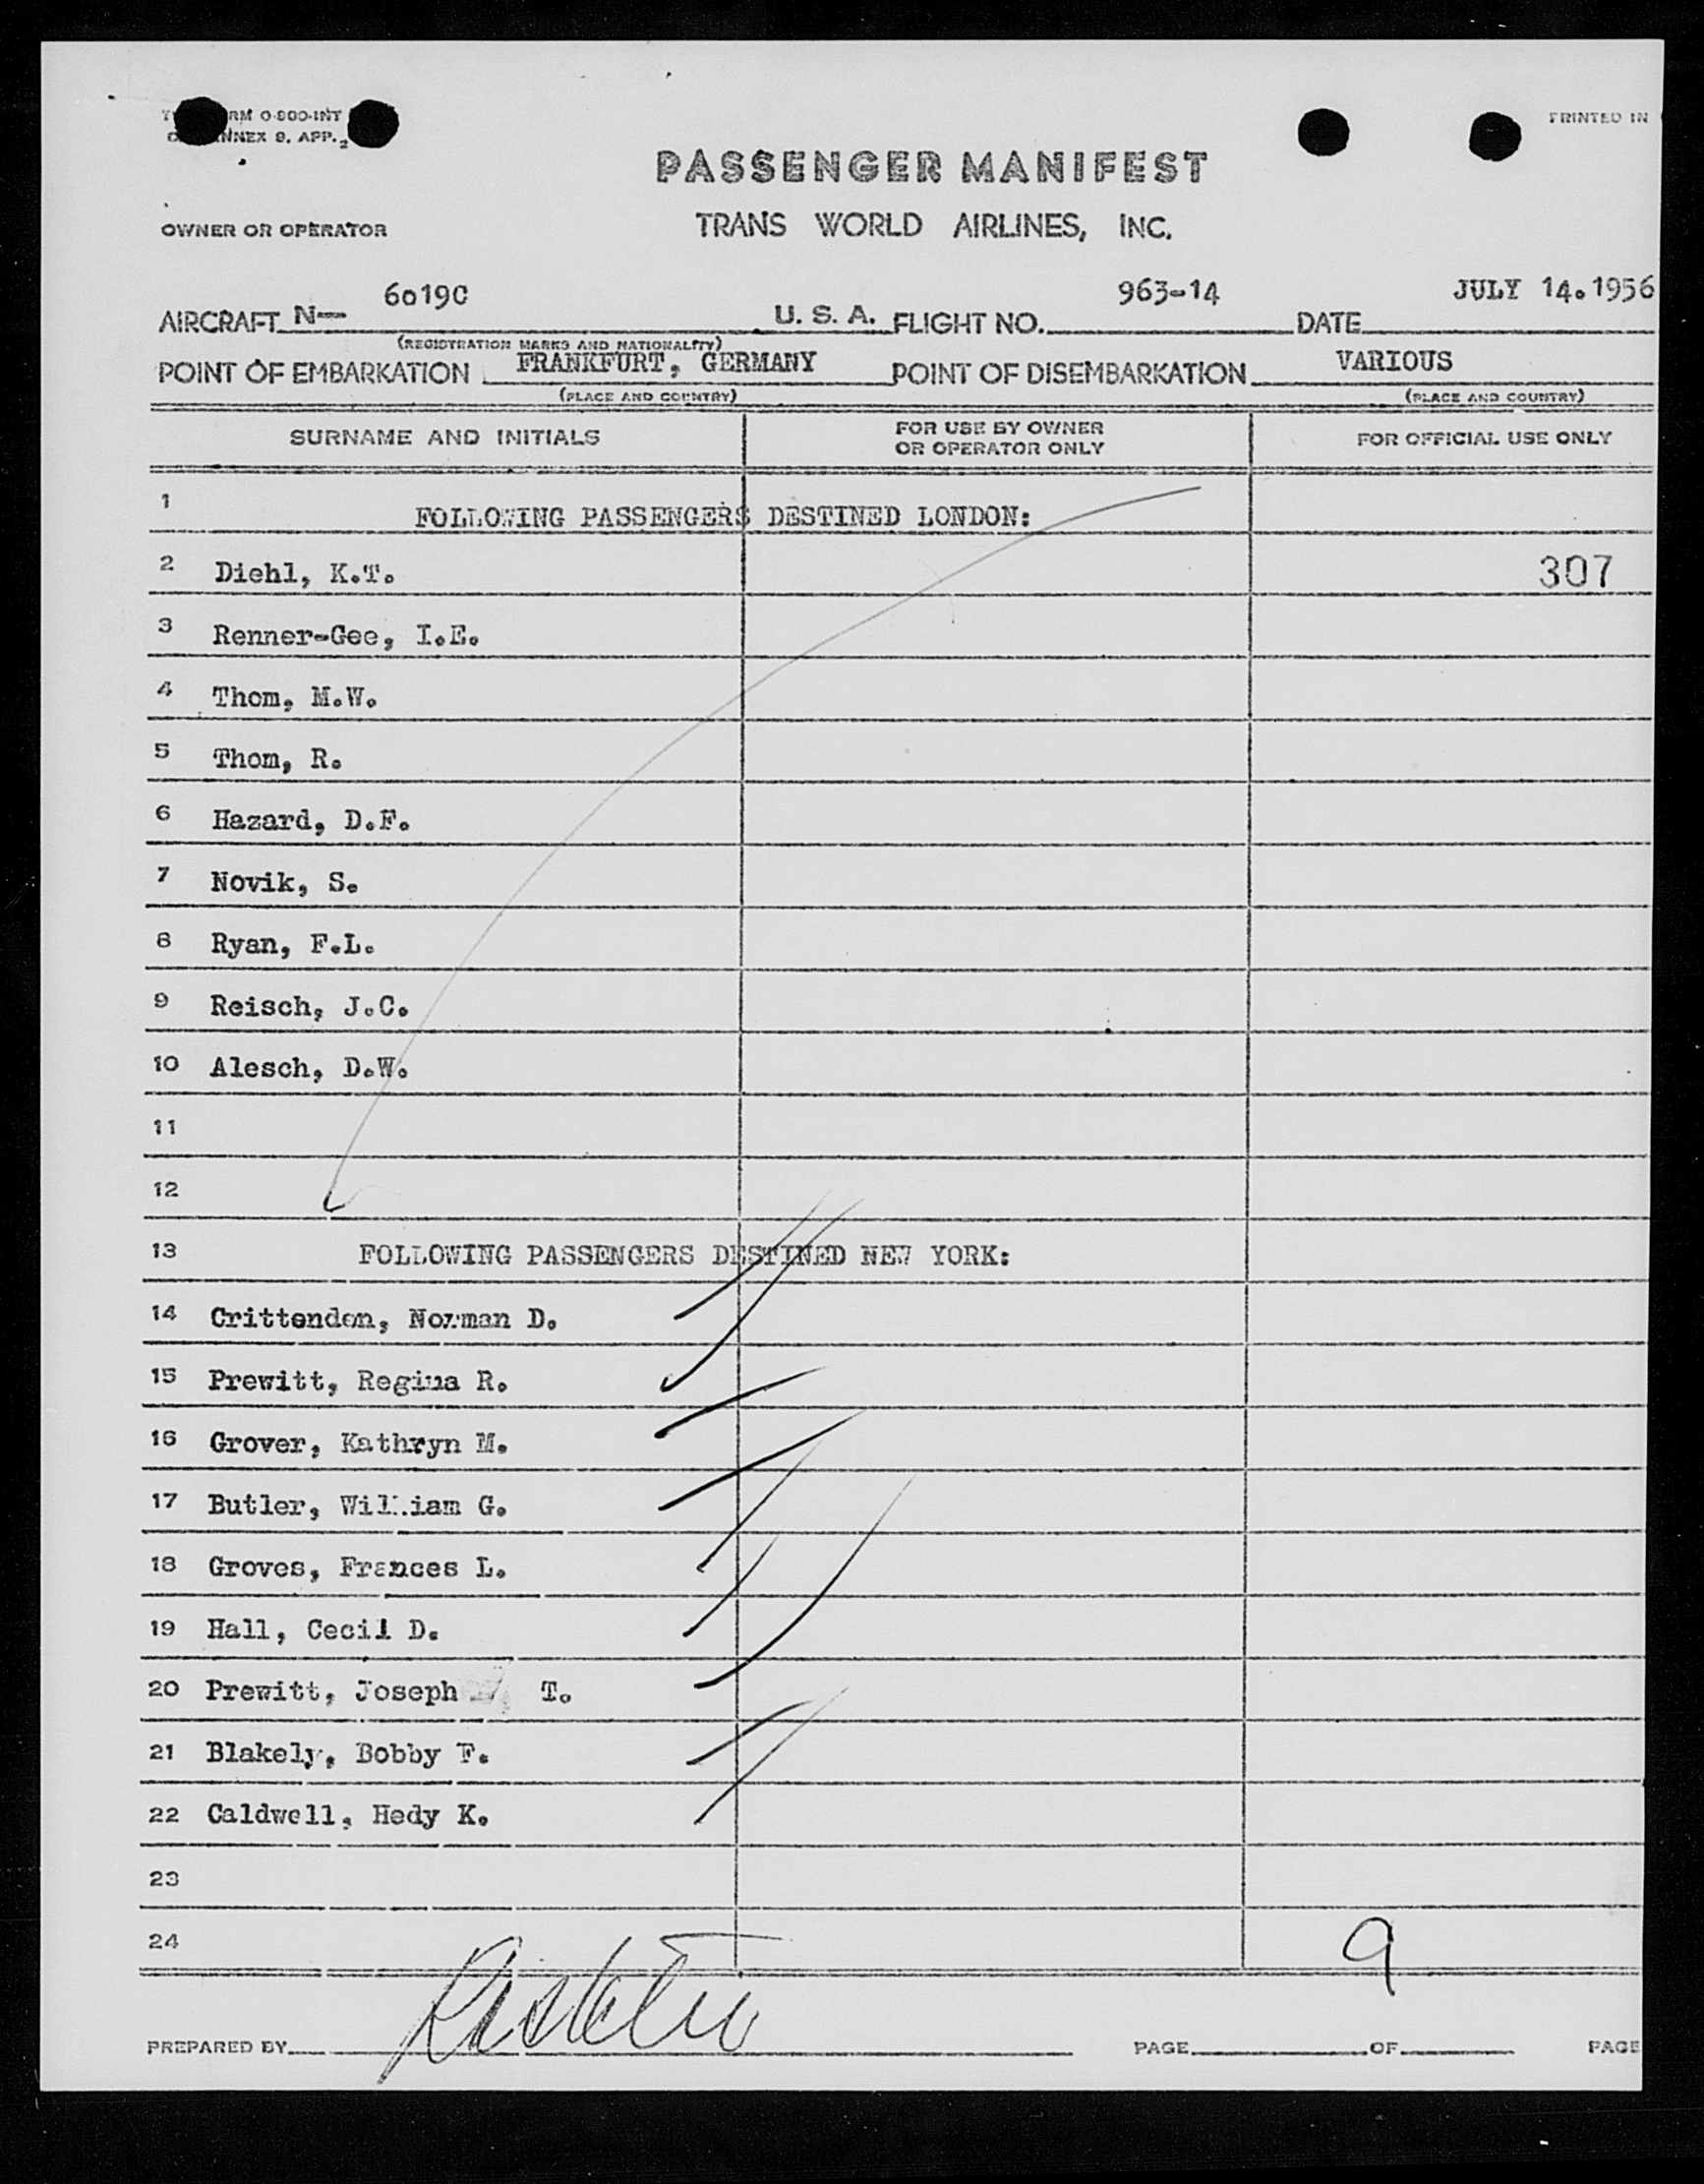 RM O-800-INT
NNEX 9, APP. 2
PRINTED IN
PASSENGER MANIFEST
OWNER OR OPERATOR
TRANS WORLD AIRLINES, INC.
AIRCRAFT N— 6019C U. S. A. FLIGHT NO. 963-14 DATE JULY 14.1956
(REGISTRATION MARKS AND NATIONALITY)
POINT OF EMBARKATION FRANKFURT, GERMANY POINT OF DISEMBARKATION VARIOUS
(PLACE AND COUNTRY) (PLACE AND COUNTRY)
SURNAME AND INITIALS FOR USE BY OWNER OR OPERATOR ONLY FOR OFFICIAL USE ONLY
1 FOLLOWING PASSENGERS DESTINED LONDON:
2 Diehl, K.T. 307
3 Renner-Gee, I.E.
4 Thom, M.W.
5 Thom, R.
6 Hazard, D.F.
7 Novik, S.
8 Ryan, F.L.
9 Reisch, J.C.
10 Alesch, D.W.
11
12
13 FOLLOWING PASSENGERS DESTINED NEW YORK:
14 Crittenden, Norman D.
15 Prewitt, Regina R.
16 Grover, Kathryn M.
17 Butler, William G.
18 Groves, Frances L.
19 Hall, Cecil D.
20 Prewitt, Joseph T.
21 Blakely, Bobby F.
22 Caldwell, Hedy K.
23
24 9
PREPARED BY PAGE OF PAGE